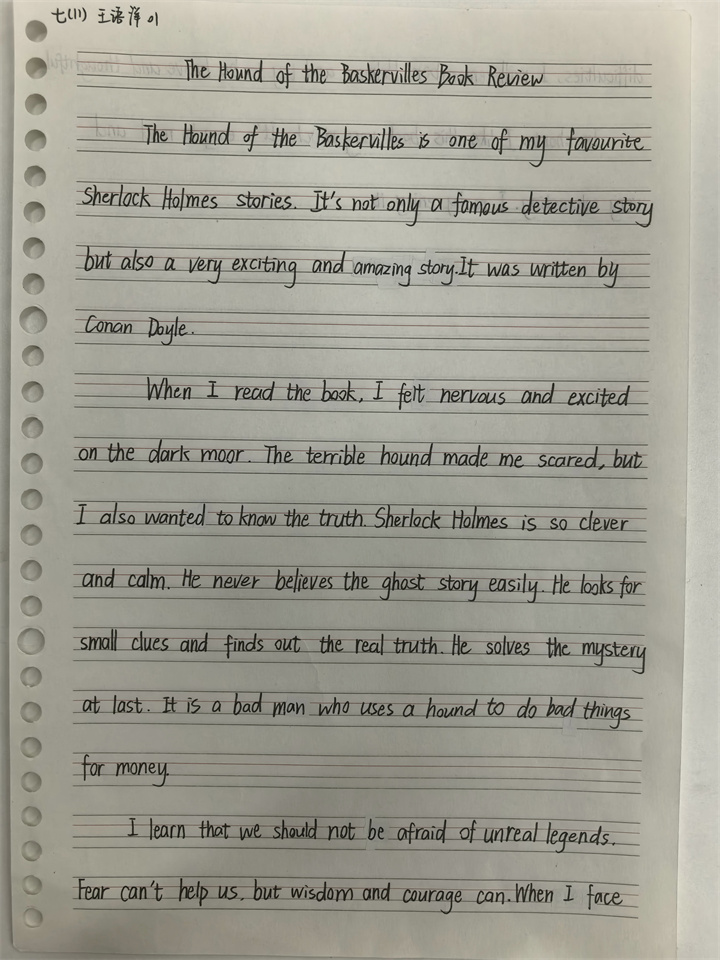 七(11) 王语洋 01
The Hound of the Baskervilles Book Review
The Hound of the Baskervilles is one of my favourite
Sherlock Holmes stories. It's not only a famous detective story
but also a very exciting and amazing story.It was written by
Conan Doyle.
When I read the book, I felt nervous and excited
on the dark moor. The terrible hound made me scared, but
I also wanted to know the truth. Sherlock Holmes is so clever
and calm. He never believes the ghost story easily. He looks for
small clues and finds out the real truth. He solves the mystery
at last. It is a bad man who uses a hound to do bad things
for money.
I learn that we should not be afraid of unreal legends.
Fear can't help us, but wisdom and courage can. When I face